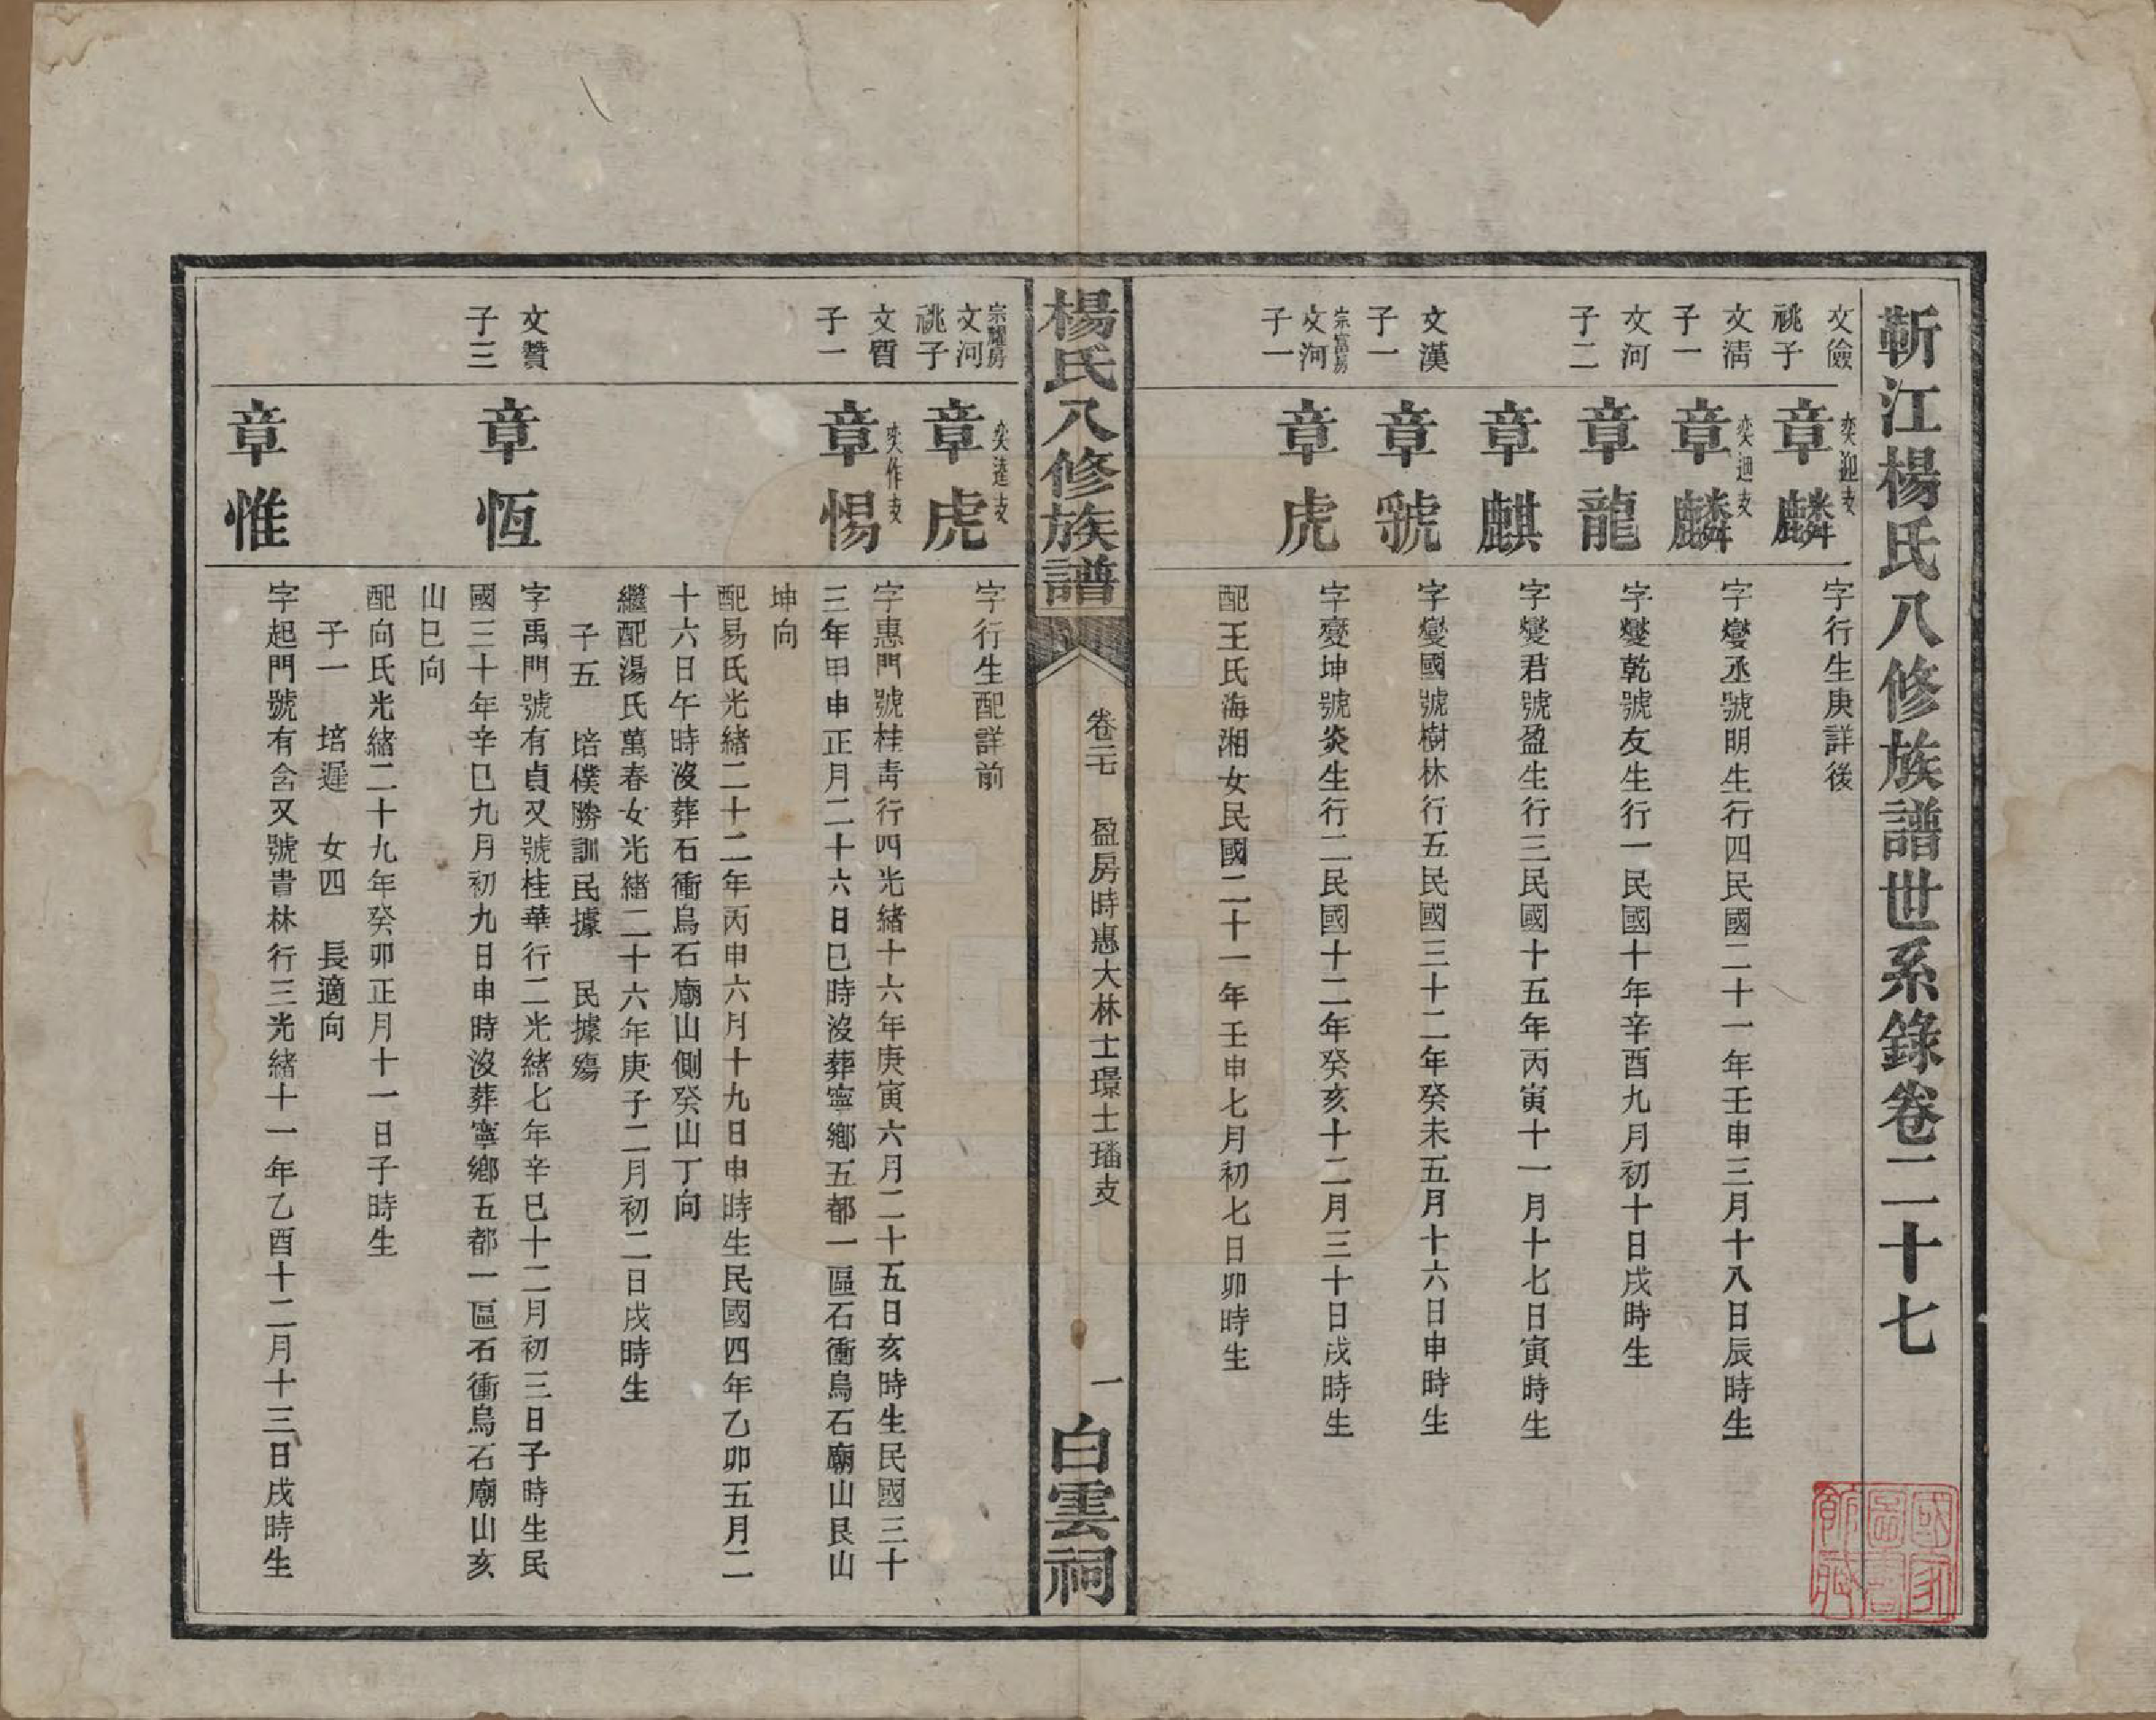 靳江楊氏八修族譜世系錄卷二十七
文儉
祧子
奕迎支
章麟
字行生庚詳後
文清
子一
奕迎支
章麟
字燮丞號明生行四民國二十一年壬申三月十八日辰時生
文河
子二
章龍
字燮乾號友生行一民國十年辛酉九月初十日戌時生
章麒
字燮君號盈生行三民國十五年丙寅十一月十七日寅時生
文漢
子一
章虢
字燮國號樹林行五民國三十二年癸未五月十六日申時生
宗富房
文河
子一
章虎
字燮坤號炎生行二民國十二年癸亥十二月三十日戌時生
配王氏海湘女民國二十一年壬申七月初七日卯時生
楊氏八修族譜
卷二七
盈房時惠大林士璟士璠支
一
白雲祠
宗耀房
文河
祧子
奕達支
章虎
字行生配詳前
文質
子一
奕作支
章惕
字惠門號桂靑行四光緒十六年庚寅六月二十五日亥時生民國三十
三年甲申正月二十六日巳時沒葬寧鄉五都一區石衝烏石廟山艮山
坤向
配易氏光緒二十二年丙申六月十九日申時生民國四年乙卯五月二
十六日午時沒葬石衝烏石廟山側癸山丁向
繼配湯氏萬春女光緒二十六年庚子二月初二日戌時生
子五 培樸勝訓民據 民據殤
文贊
子三
章恆
字禹門號有貞又號桂華行二光緒七年辛巳十二月初三日子時生民
國三十年辛巳九月初九日申時沒葬寧鄉五都一區石衝烏石廟山亥
山巳向
配向氏光緒二十九年癸卯正月十一日子時生
子一 培遲 女四 長適向
章惟
字起門號有含又號貴林行三光緒十一年乙酉十二月十三日戌時生
國家
圖書
館藏